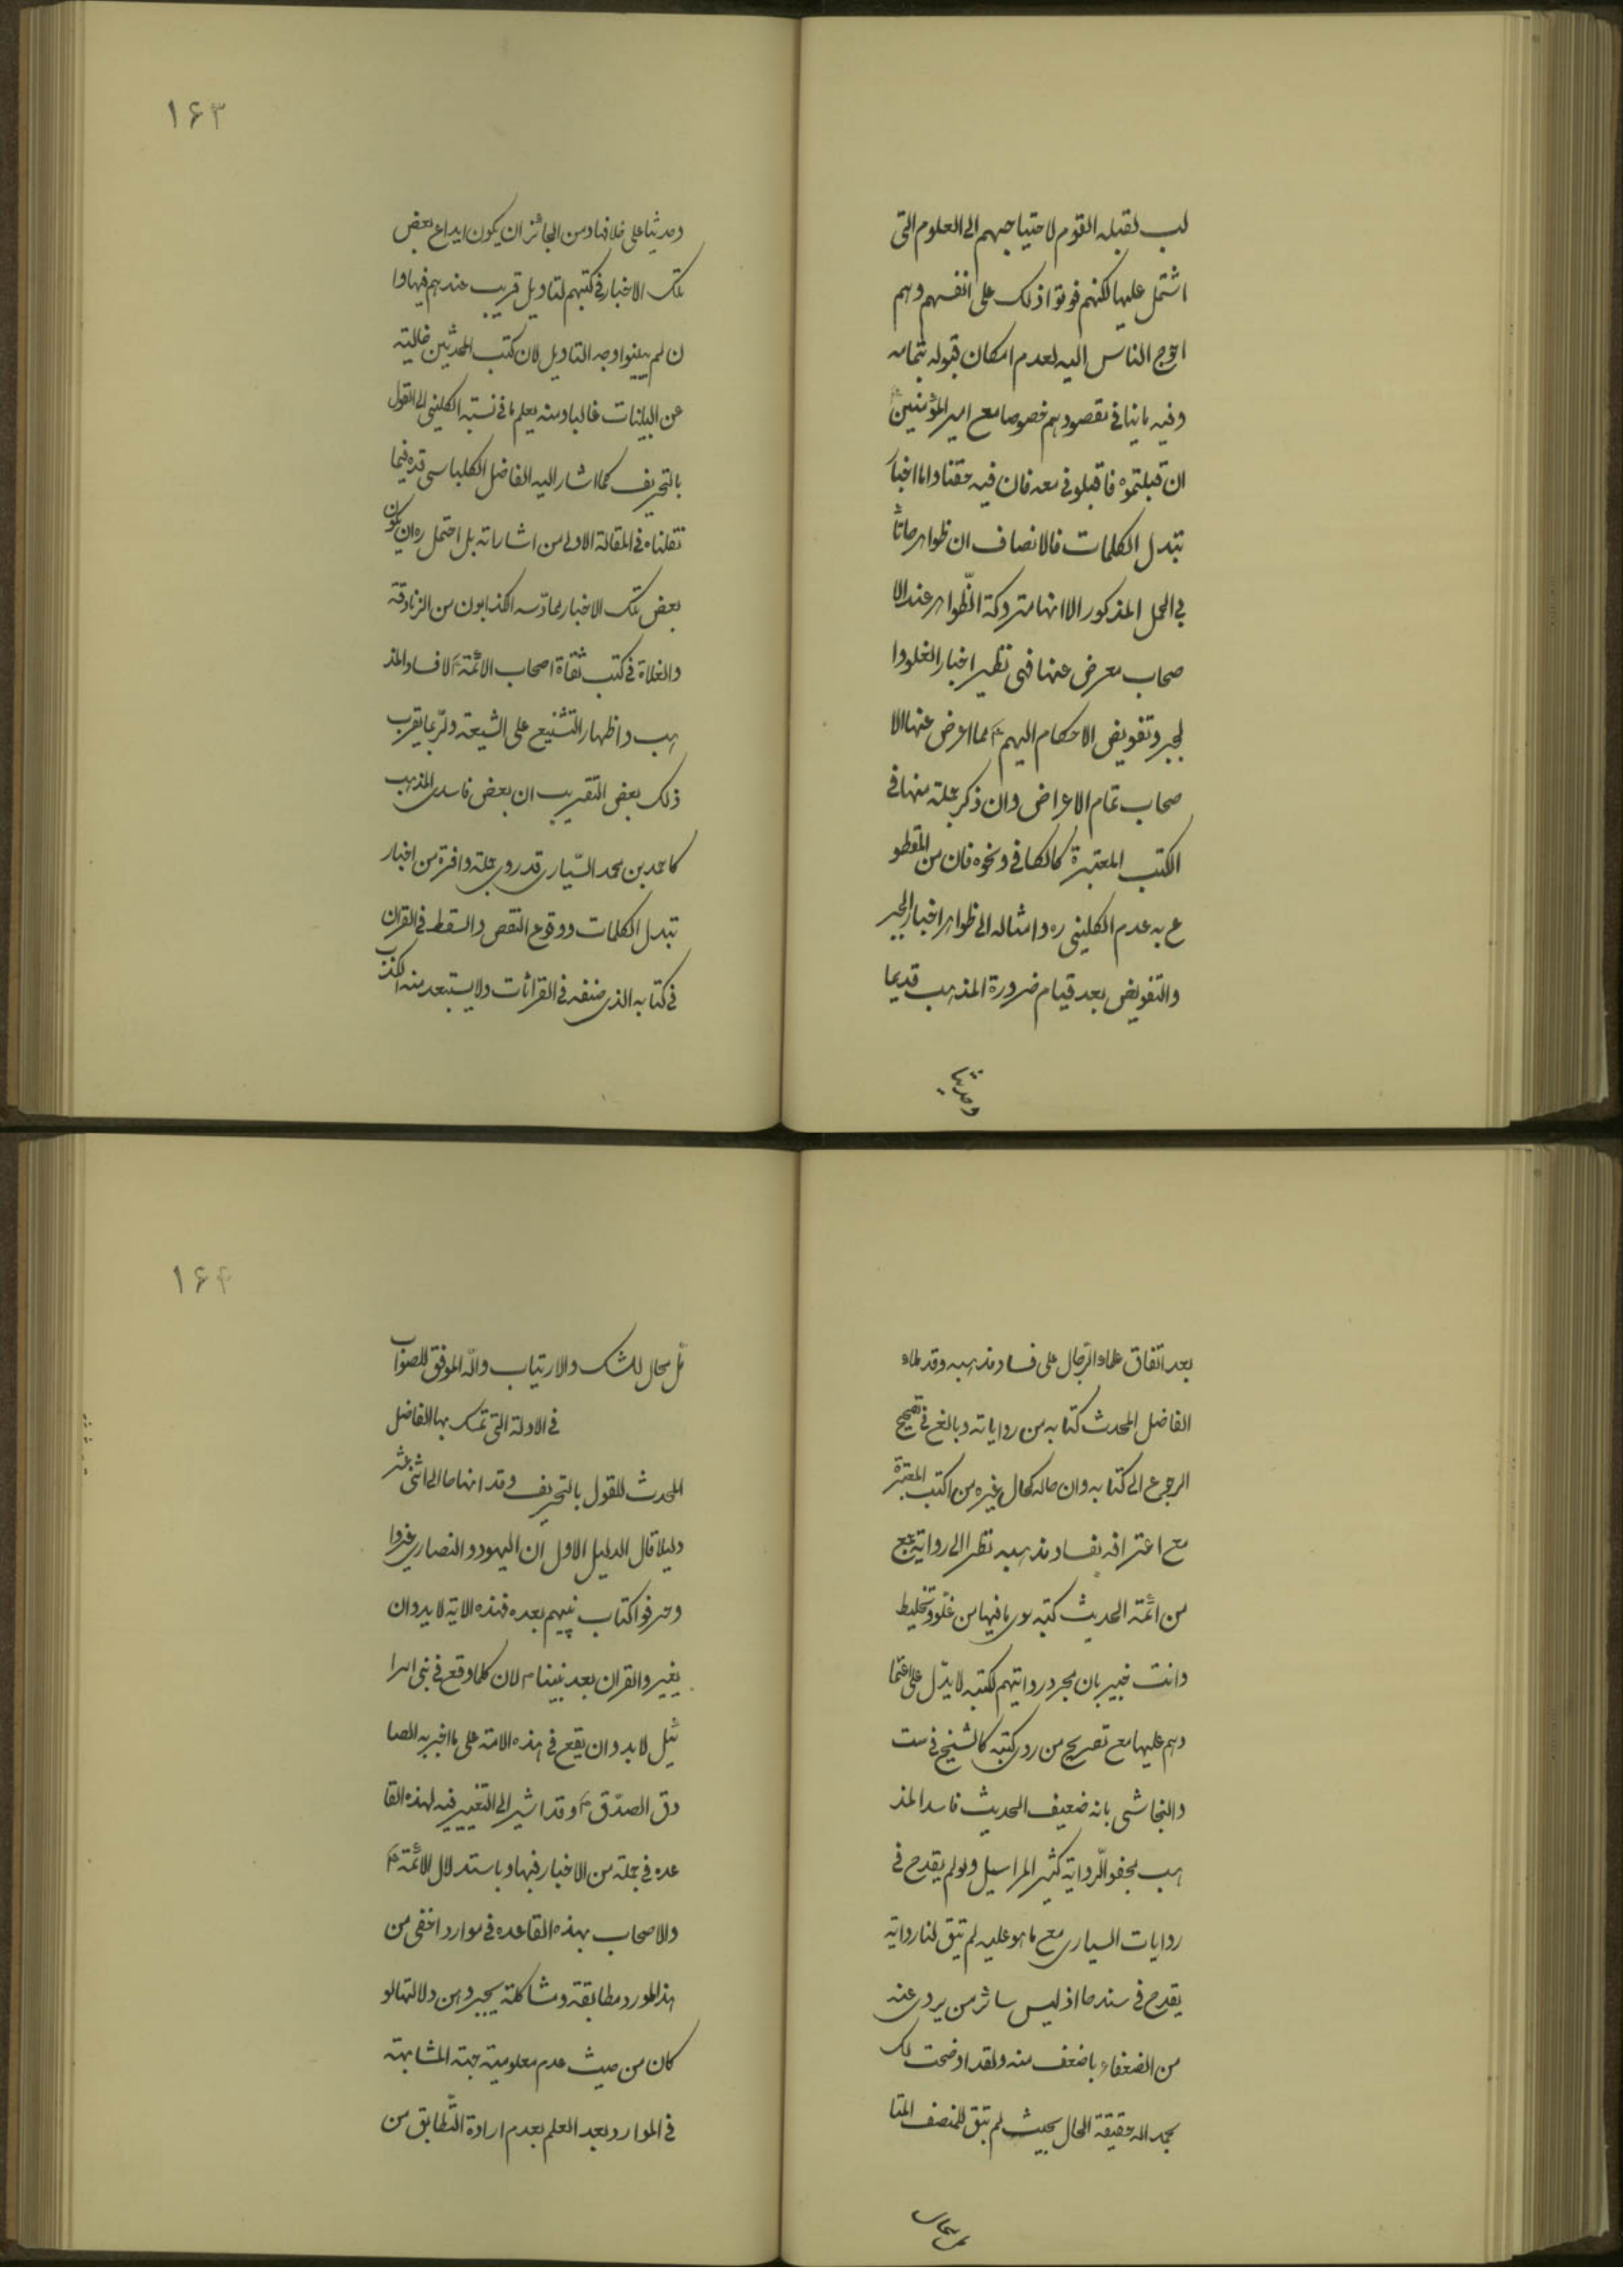 لب لقبله القوم لاحتياجهم الى العلوم التى
اشتمل عليها لكنهم فوتوا ذلك على انفسهم وهم
احوج الناس اليه لعدم امكان قبوله بتمامه
وفيه ما ينافى مقصودهم خصوصا مع امير المؤمنين
ان قبلتموه فاقبلونى معه فان فيه حقنا واما اخبار
تبدل الكلمات فالانصاف ان ظواهرها تأ
بى الحمل المذكور الا انها متروكة الظّواهر عند الا
صحاب معرض عنها فهى نظير اخبار الغلو وا
لجبر وتفويض الاحكام اليهم ع مما اعرض عنها الا
صحاب تمام الاعراض وان ذكر جملة منها فى
الكتب المعتبرة كالكافى ونحوه فان من المقطو
ع به عدم الكلينى ره وامثاله الى ظواهر اخبار الجبر
والتفويض بعد قيام ضرورة المذهب قديما
وحديثا
١۶٣
وحديثا على خلافها ومن الجائز ان يكون ايداع بعض
تلك الاخبار فى كتبهم لتاويل قريب عندهم فيها وا
ن لم يبينوا وجه التاويل لان كتب المحدثين خالية
عن البيانات غالبا ومنه يعلم ما فى نسبة الكلينى الى القول
بالتحريف كما اشار اليه الفاضل الكلباسى قده فيما
نقلناه فى المقالة الاولى من اشاراته بل احتمل ره ان يكون
بعض تلك الاخبار مما دسه الكذابون من الزنادقة
والغلاة فى كتب ثقاة اصحاب الائمّة ع لافساد المذ
هب واظهار التشنيع على الشيعة ولربّما يقرب
ذلك بعض التقريب ان بعض فاسدى المذهب
كاحمد بن محمد السّيارى قد روى جملة وافرة من اخبار
تبدل الكلمات ووقوع النقص والسقط فى القران
فى كتابه الذى صنفه فى القرائات ولا يستبعد منه الكذب
بعد اتفاق علماء الرّجال على فساد مذهبه وقد ملاء
الفاضل المحدث كتابه من رواياته وبالغ فى تصحيح
الرجوع الى كتابه وان حاله كحال غيره من الكتب المعتبرة
مع اعترافه بفساد مذهبه نظرا الى رواية جمع
من ائمّة الحديث كتبه سوى ما فيها من غلوّ وتخليط
وانت خبير بان مجرد روايتهم لكتبه لا يدّل على اعتما
دهم عليها مع تصريح من روى كتبه كالشيخ فى ست
والنجاشى بانه ضعيف الحديث فاسد المذ
هب مجفو الرّواية كثير المراسيل ولو لم يقدح فى
روايات السيارى مع ما هو عليه لم تبق لنا رواية
يقدح فى سندها اذ ليس سائر من يروى عنه
من الضعفاء باضعف منه ولقد اوضحت لك
بحمد الله حقيقة الحال بحيث لم تبق للمنصف المتا
مل مجال
١۶۴
مّل مجال للشك والارتياب والله الموفق للصواب
فى الادلة التى تمسك بها الفاضل
المحدث للقول بالتحريف وقد انهاها الى اثنى عشر
دليلا قال الدليل الاول ان اليهود والنصارى غيروا
وحرفوا كتاب نبيهم بعده فهذه الاية لا بد وان
يغيروا القران بعد نبينا ص لان كلما وقع فى بنى اسرا
ئيل لا بد وان يقع فى هذه الامة على ما اخبر به الصا
دق الصدّق ص وقد اشير الى التغيير فيه لهذه القا
عده فى جملة من الاخبار فيها وباستدلال الائمّة ع
والاصحاب بهذه القاعده فى موارد اخفى من
هذا المورد مطابقة ومشاكلة يجبر وهن دلالتها لو
كان من حيث عدم معلومية جهة المشابهة
فى الموارد بعد العلم بعدم ارادة التّطابق من